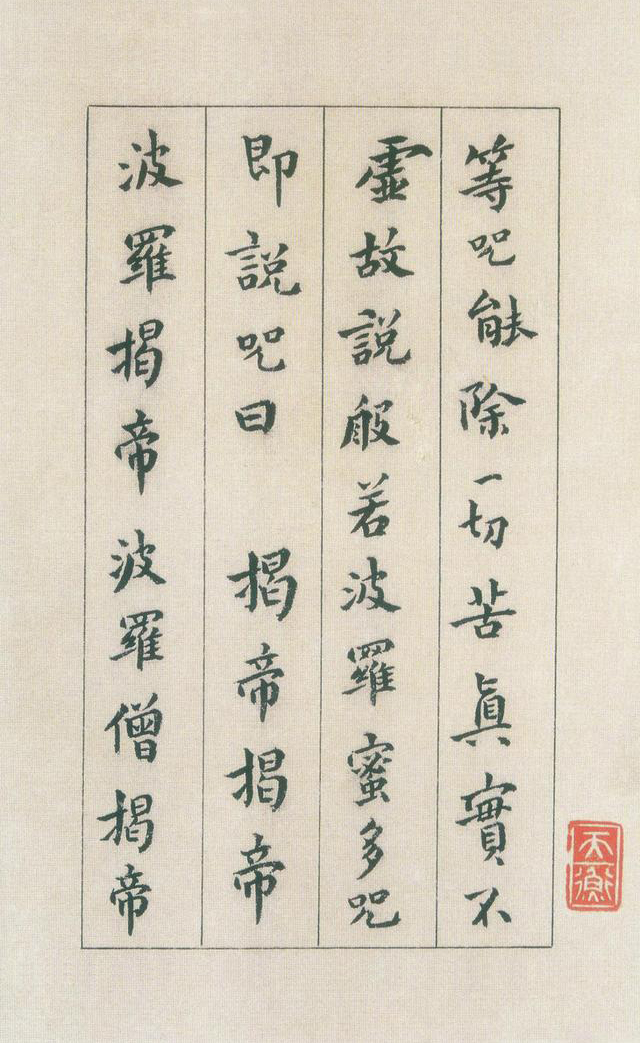 等咒能除一切苦真實不
虛故說般若波羅蜜多咒
即說咒曰　揭帝揭帝
波羅揭帝波羅僧揭帝
天衡